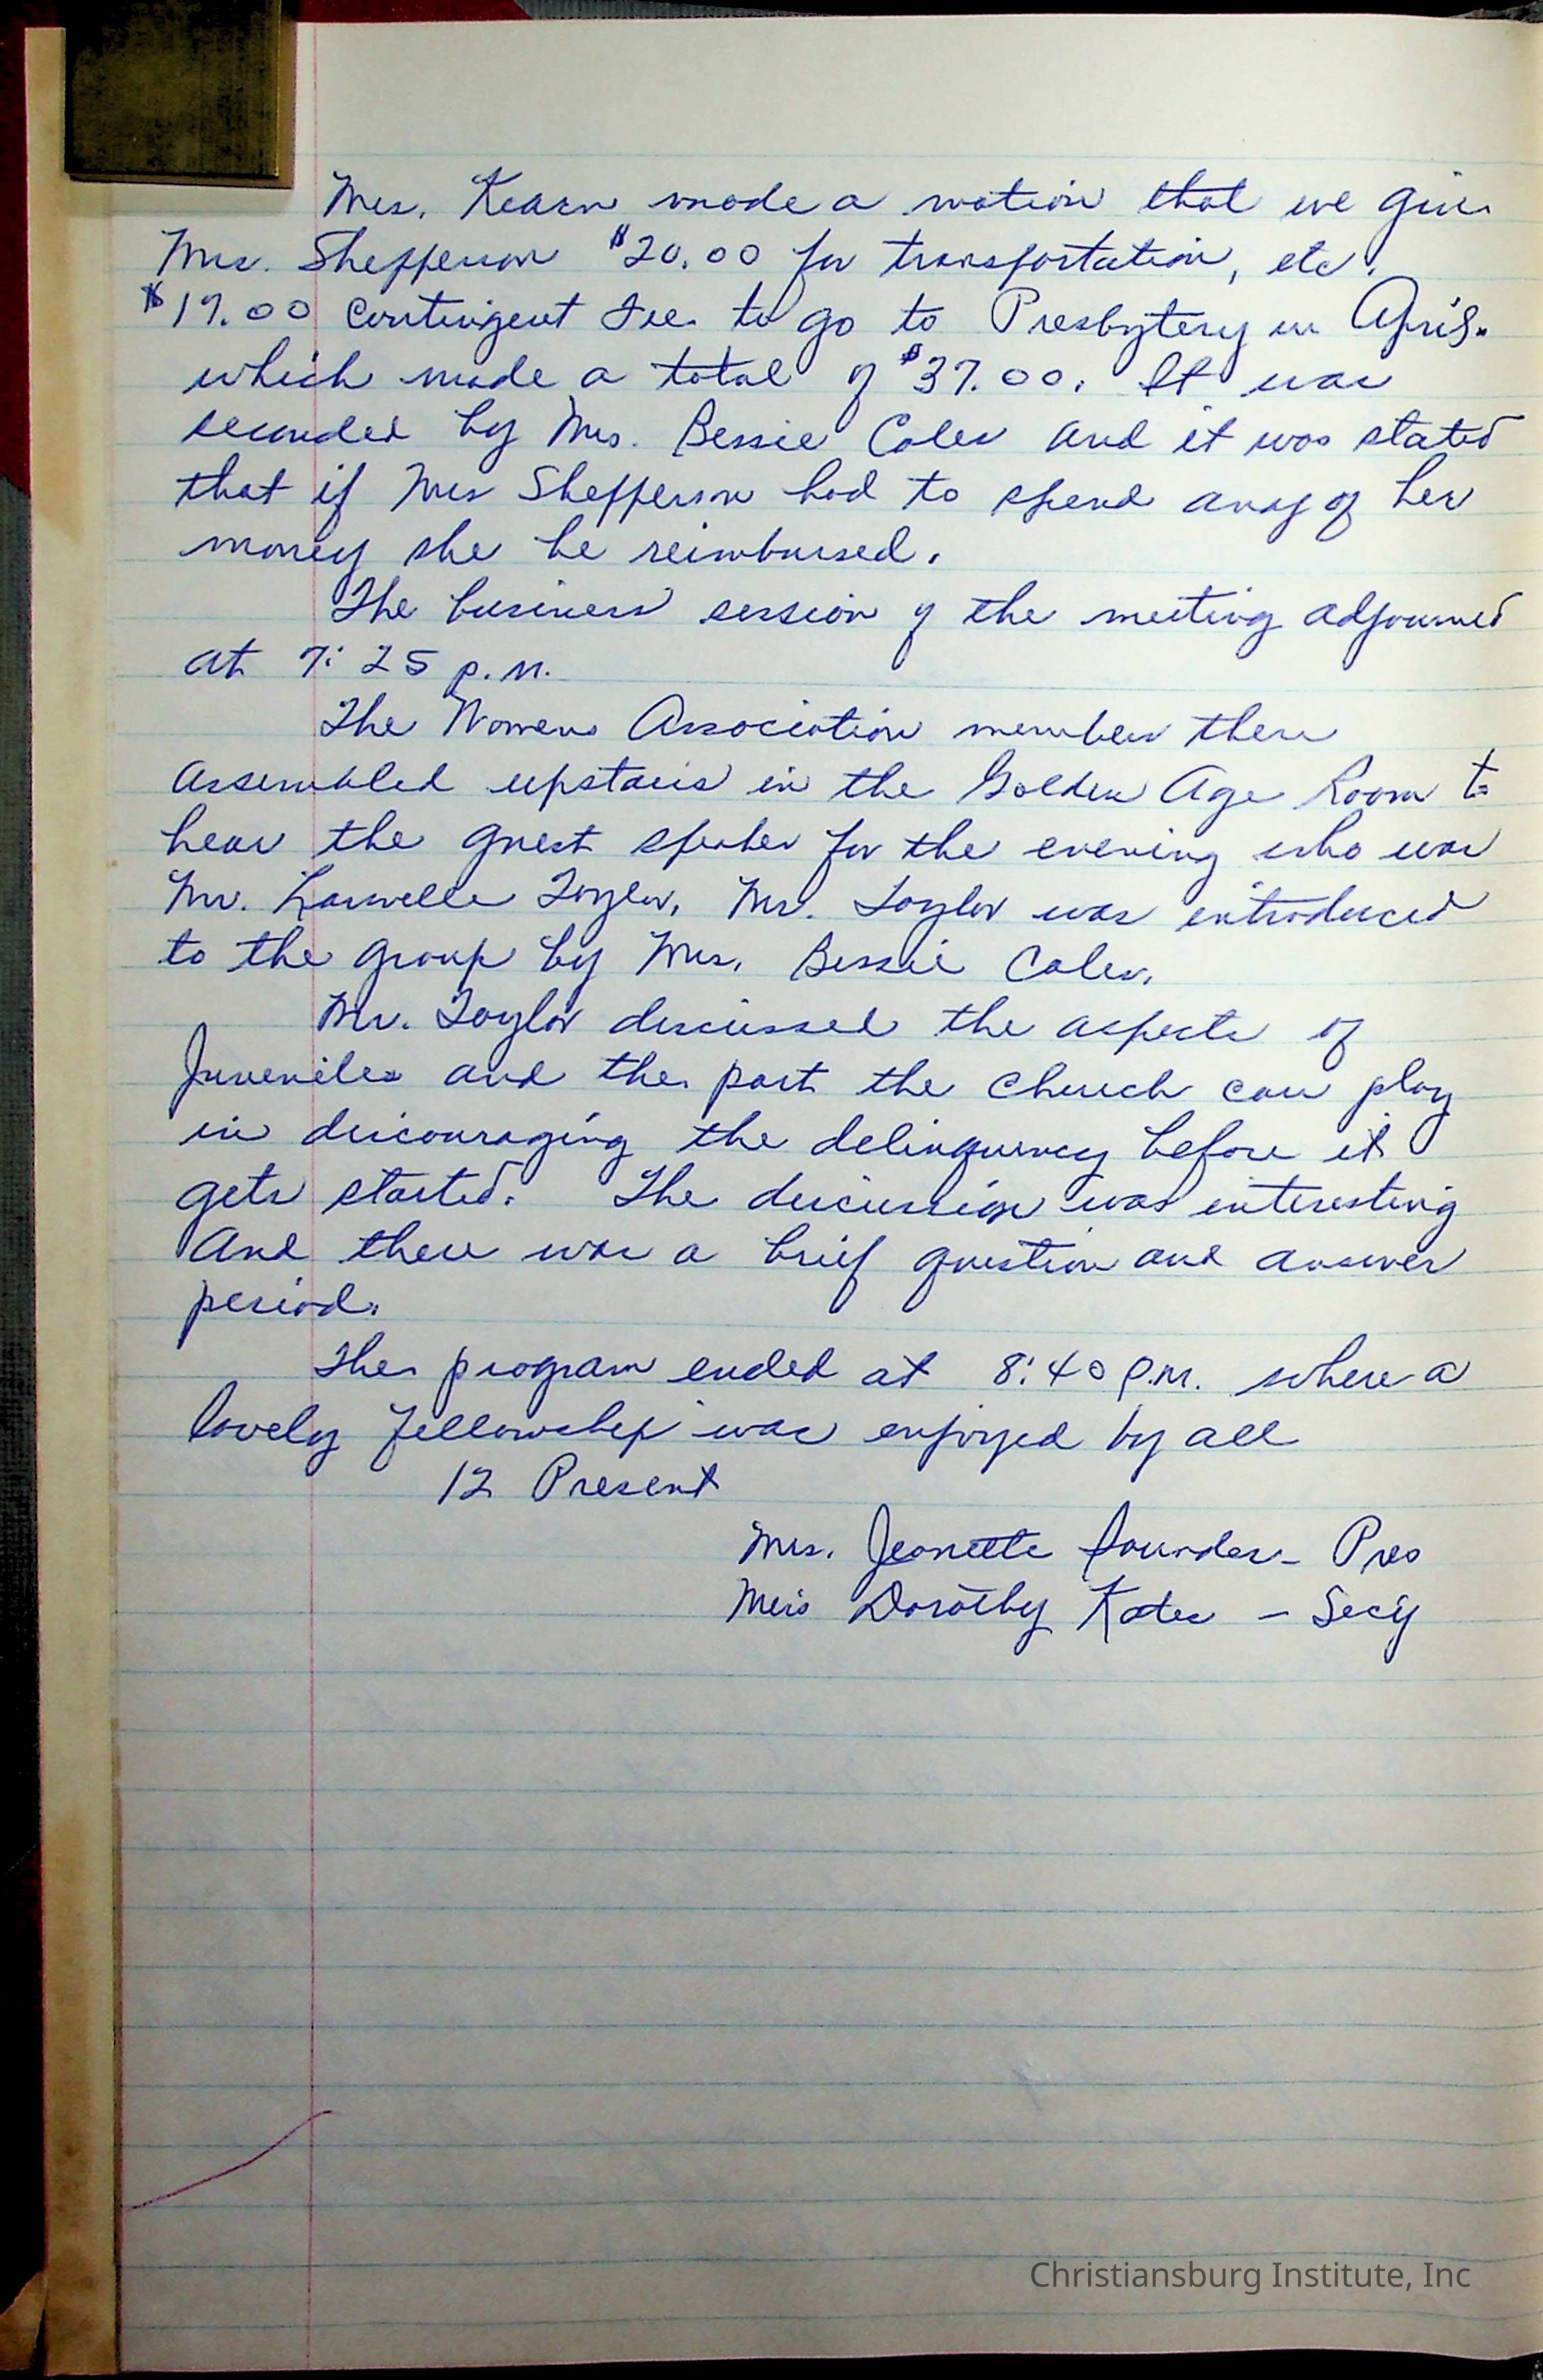 Mrs. Kearn made a motion that we give
Mrs. Shepperson $20.00 for transportation, etc.
$17.00 contingent fee to go to Presbytery in April.
which made a total of $37.00. It was
seconded by Mrs. Bessie Coles and it was stated
that if Mrs Shepperson had to spend any of her
money she be reimbursed.
The business session of the meeting adjourned
at 7:25 p.m.
The Womens Association members then
assembled upstairs in the Golden Age Room to
hear the guest speaker for the evening who was
Mr. Taylor, Mr. Taylor was introduced
to the group by Mrs. Bessie Coles.
Mr. Taylor discussed the aspects of
Juveniles and the part the church can play
in discouraging the delinquency before it
gets started. The discussion was interesting
And there was a brief question and answer
period.
The program ended at 8:40 P.M. where a
lovely fellowship was enjoyed by all
12 Present
Mrs. Jeanette Saunders - Pres
Miss Dorothy Kates - Secy
Christiansburg Institute, Inc